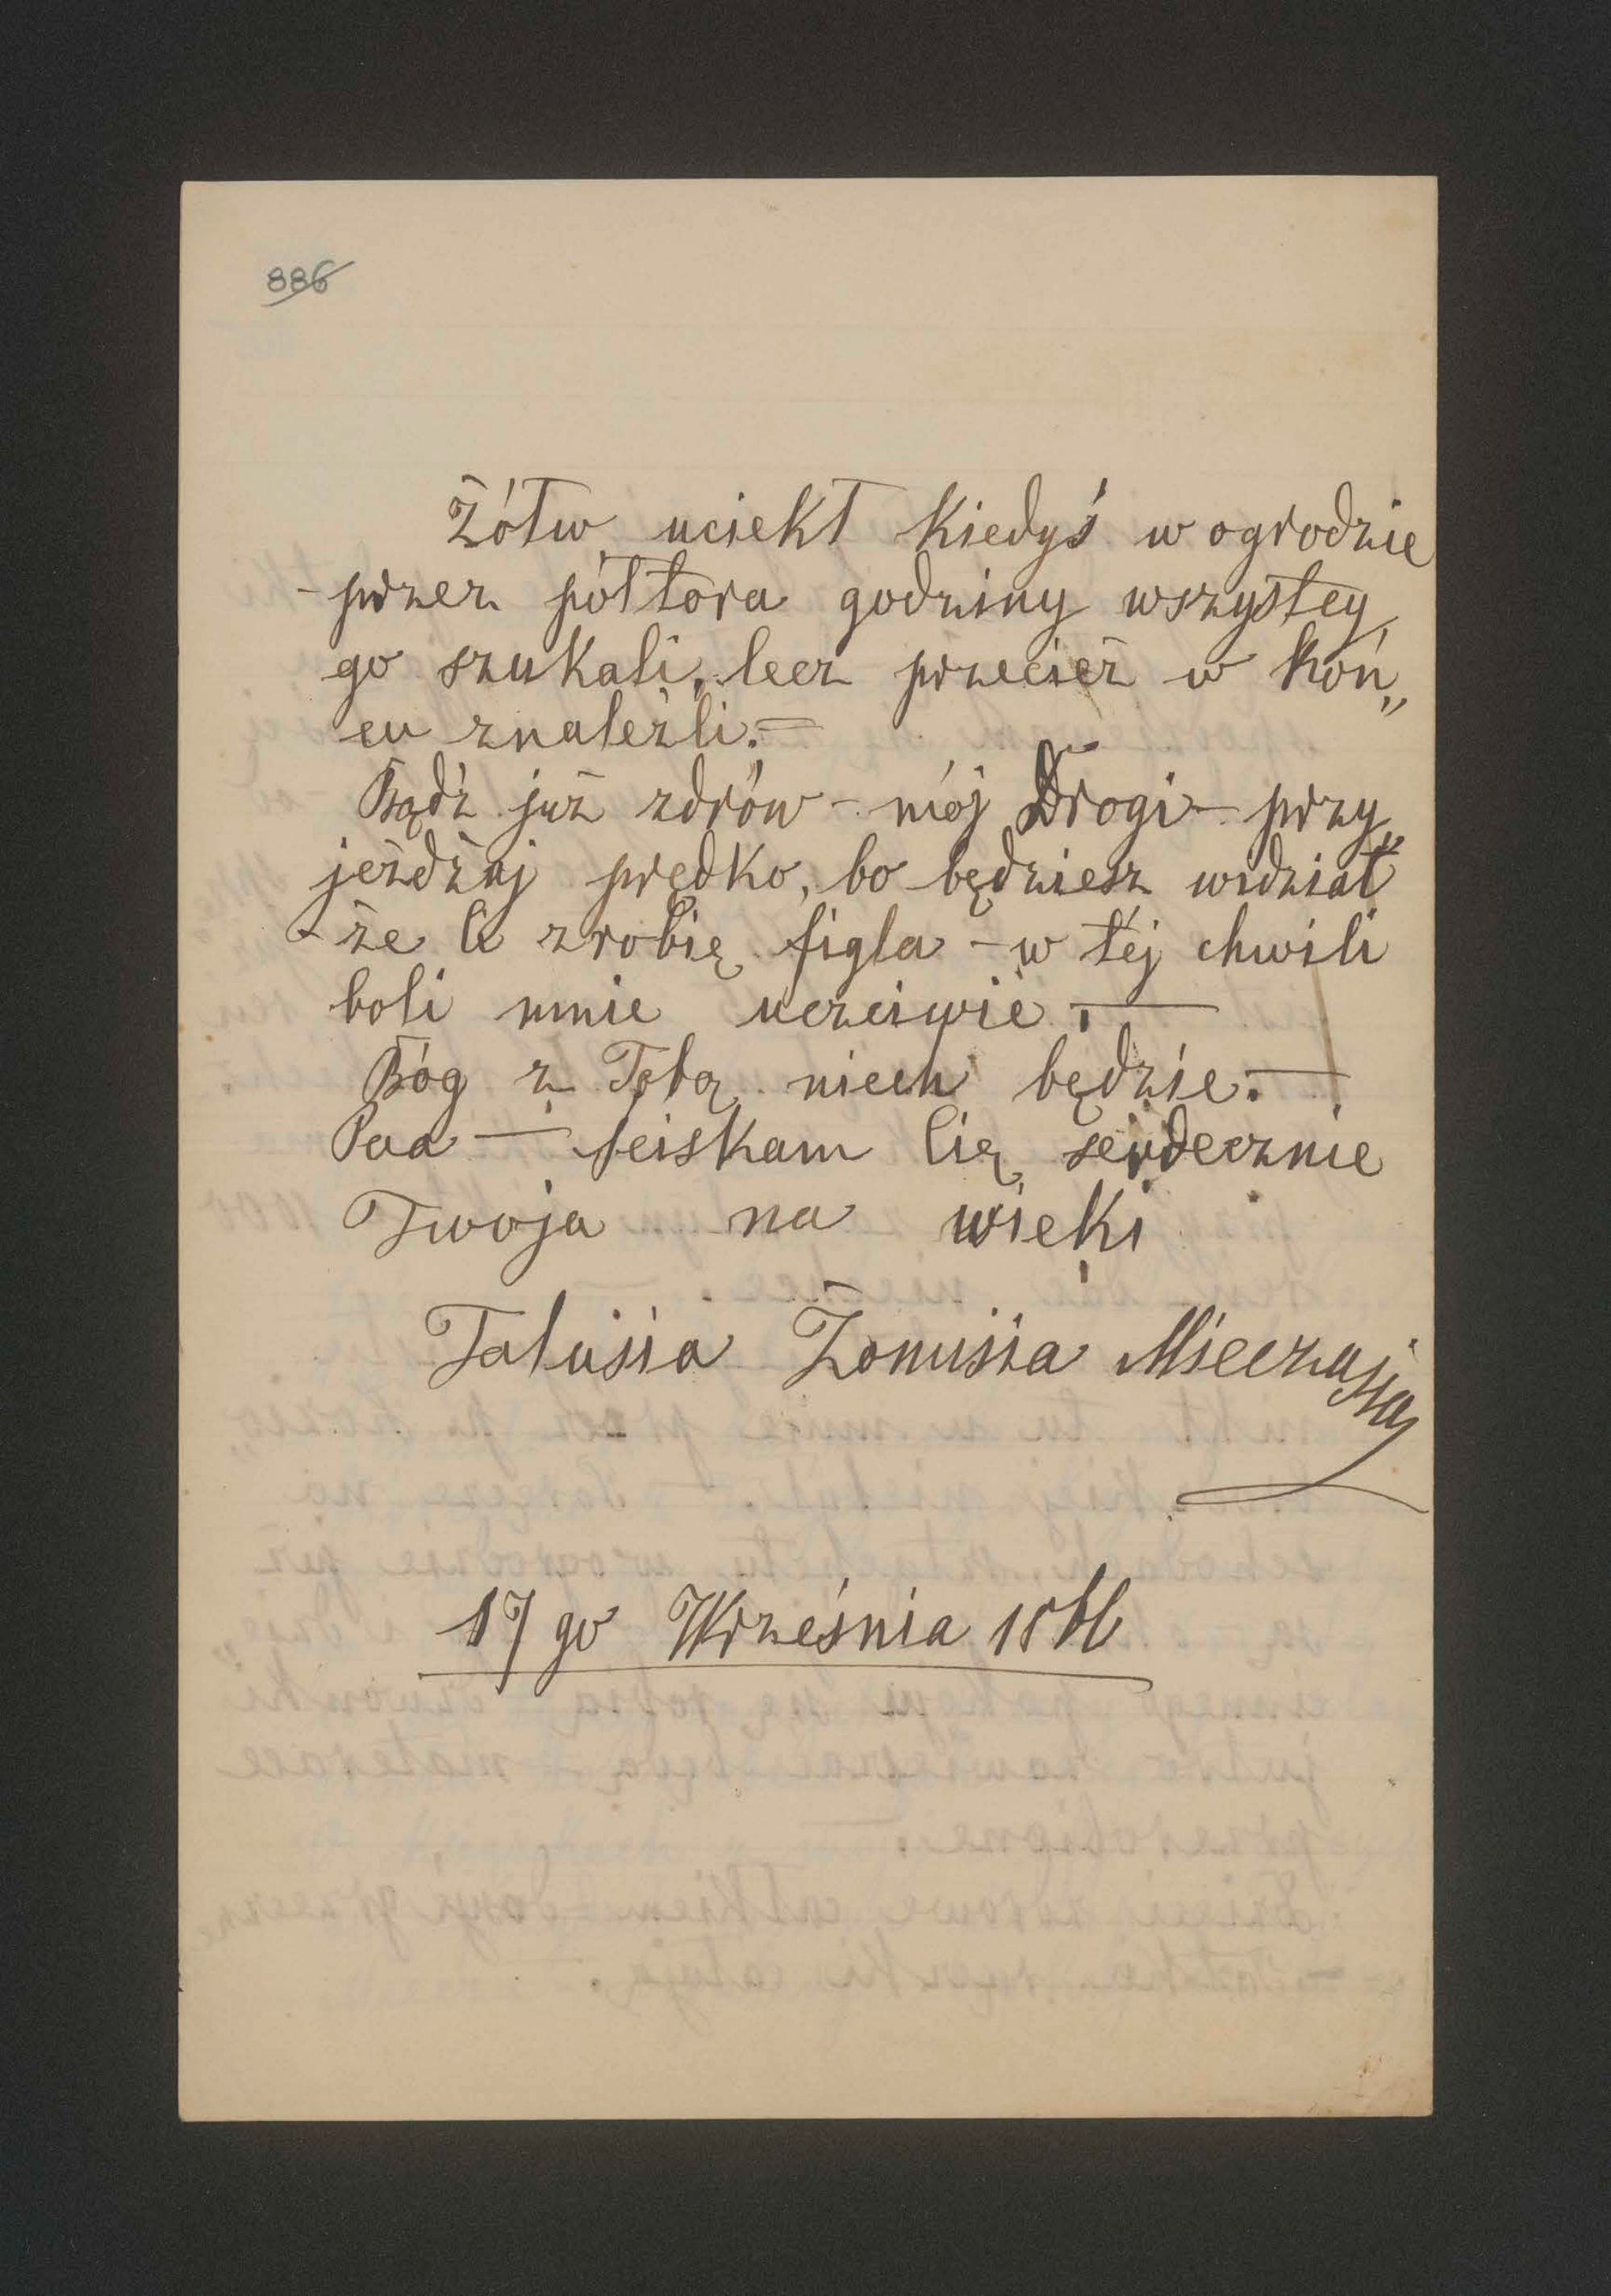 886
Żółw uciekł kiedyś w ogrodzie
- przez półtora godziny wszystcy
go szukali, lecz przecież w koń„
cu znaleźli. —
Bądź już zdrów - mój Drogi - przy„
jeżdżaj prędko, bo będziesz widział
- że Ci zrobię figla - w téj chwili
boli mnie uczciwie. —
Bóg z Tobą niech będzie. —
Paa — ściskam Cię serdecznie
Twoja na wieki
Talusia Żonusia Mieczasia
17 go Września 18